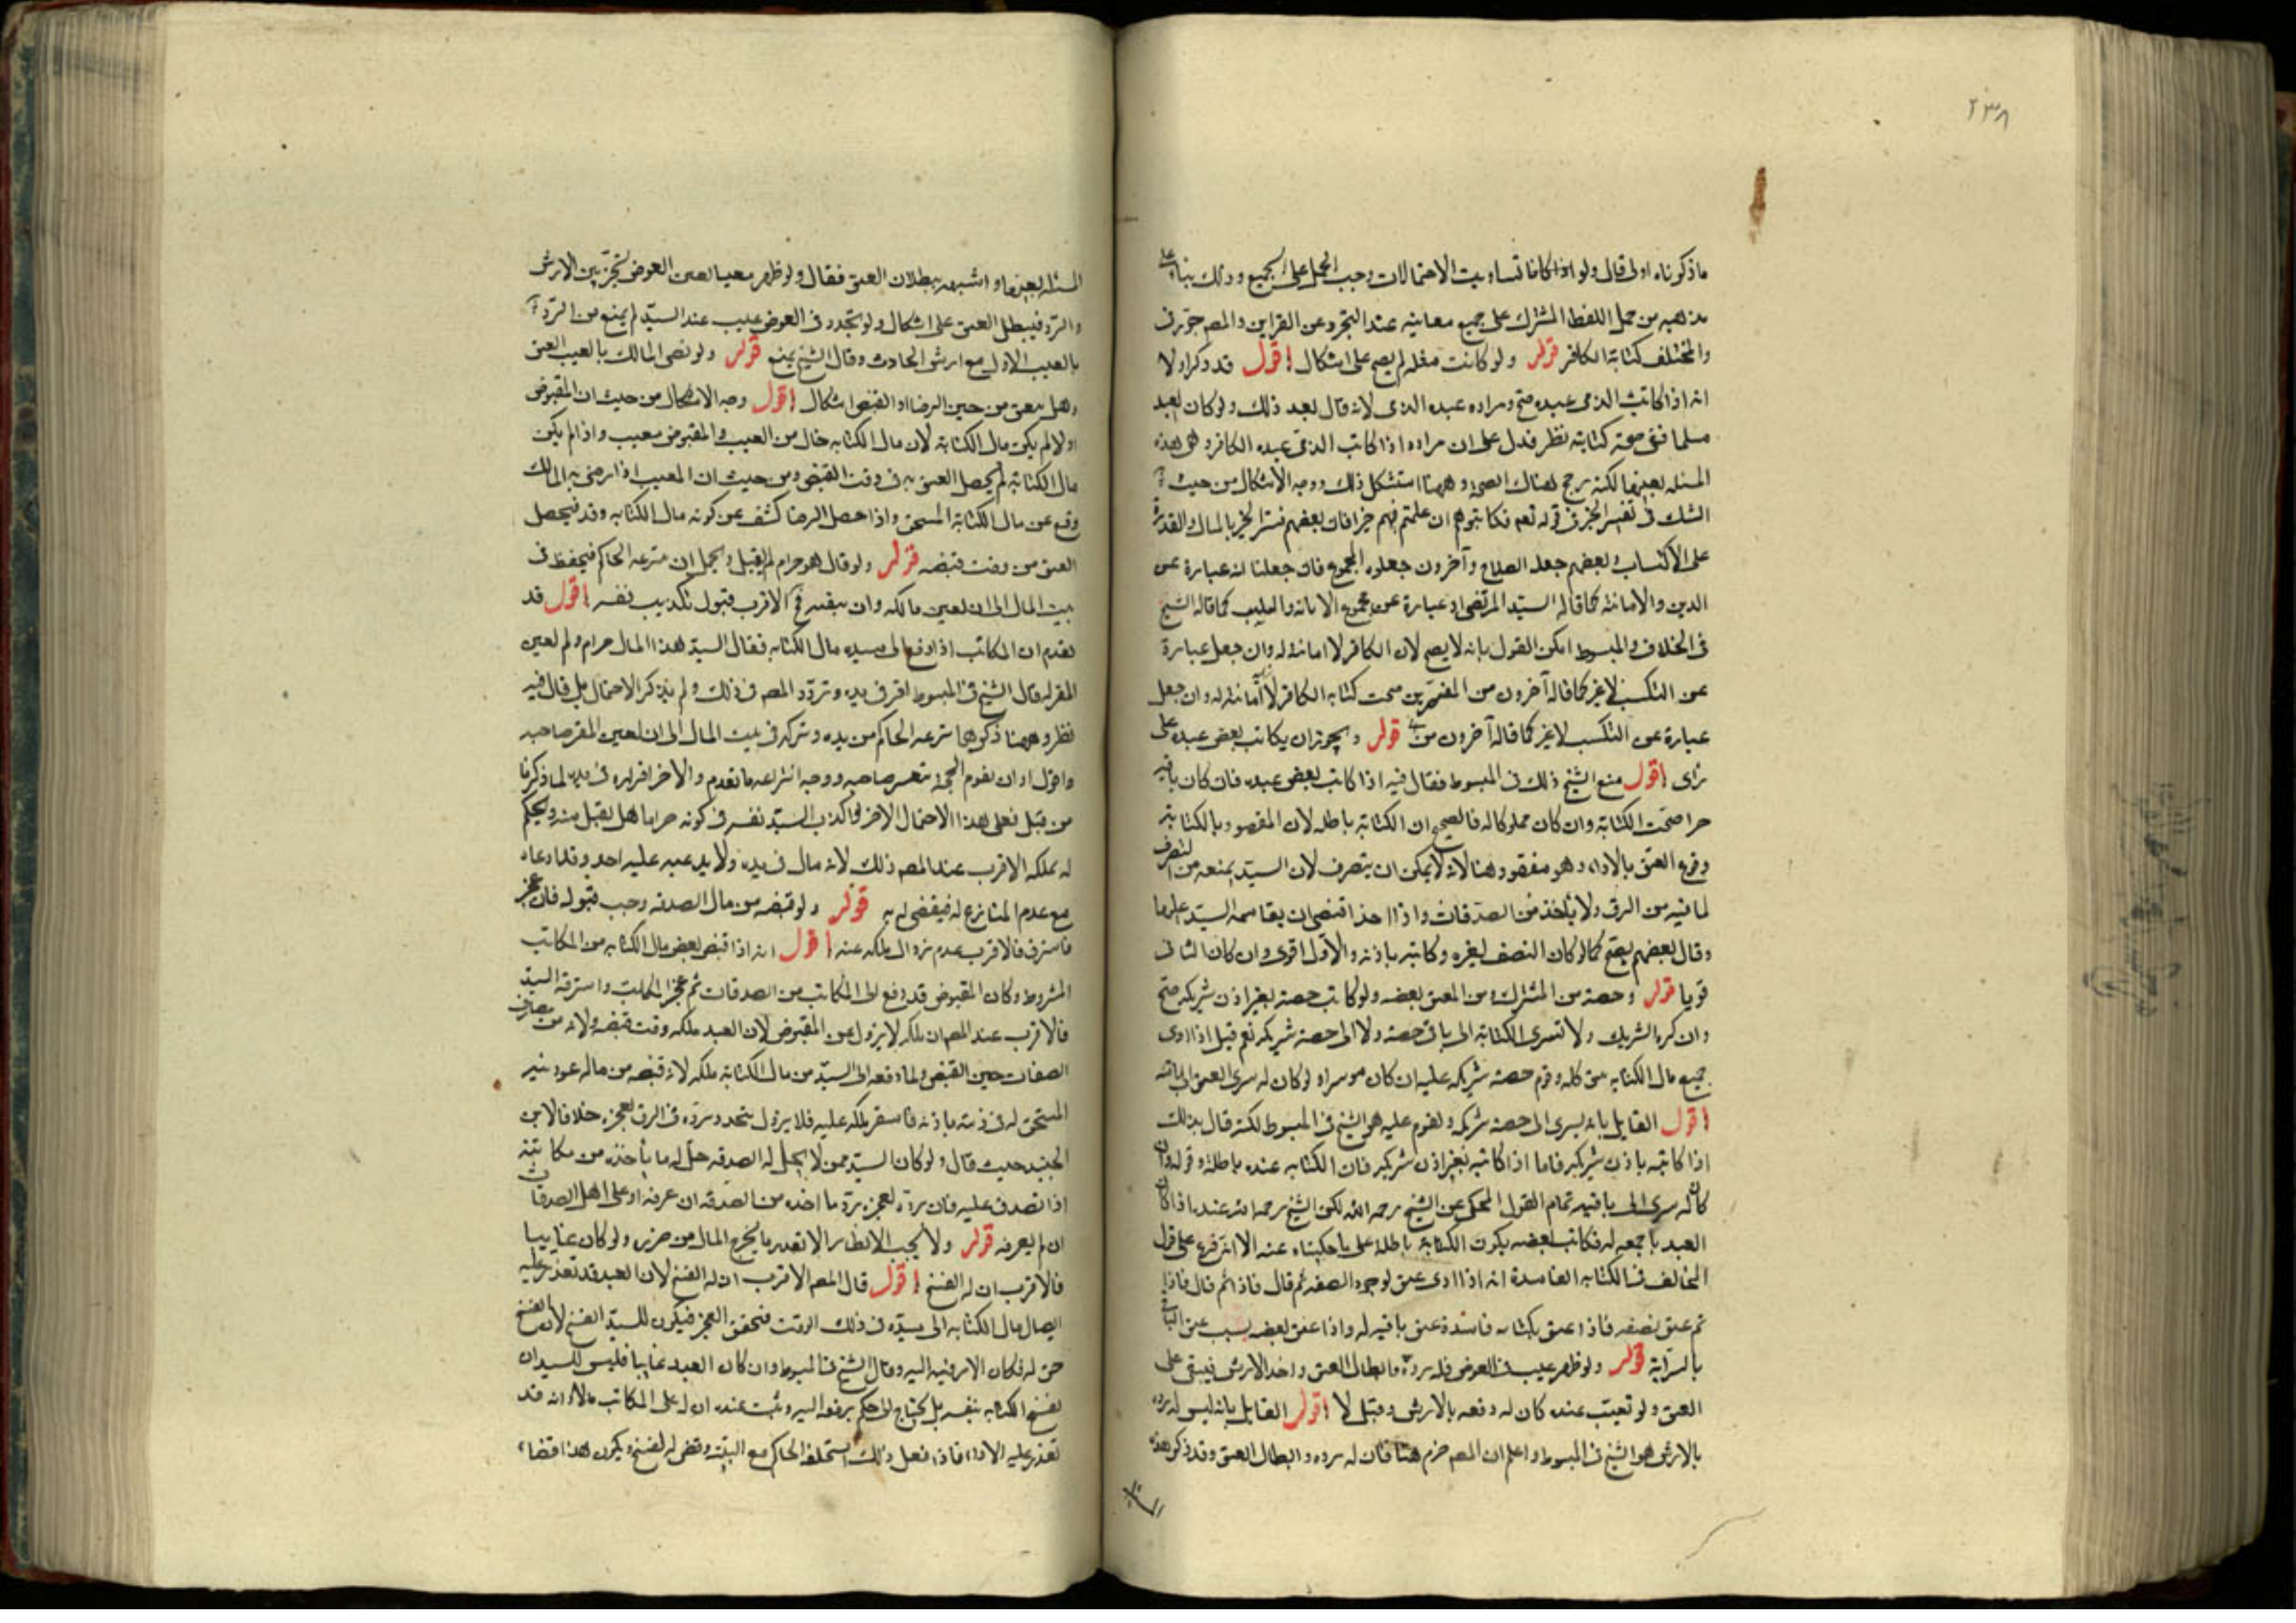 ٢٣٨
ما ذكرناه اولى قال ولو اذا كانا تساويت الاحتمالات وجب الحمل على الجميع وذلك بناء على
مذهبه من حمل اللفظ المشترك على جميع معانيه عند التجرد عن القراين والمصـ جوز في
والمختلف كتابة الكافر قوله ولو كانت مغله لم يصح على اشكال اقول قد ذكر اولا
انه اذا كاتب الذمى عبده صح ومراده عبده الذى لانه قال بعد ذلك ولو كان العبد
مسلما ففى صحة كتابته نظر فدل على ان مراده اذا كاتب الذمى عبده الكافر وهى هذه
المسئلة بعينها لكنه رجح هناك الصحة وههنا استشكل ذلك ووجه الاشكال من حيث
الشك فى تفسير الخير فى قوله تعـ فكاتبوهم ان علمتم فيهم خيرا فان بعضهم فسر الخير بالمال والقدرة
على الاكتساب وبعضهم جعله الصلاح وآخرون جعلوه المجموع فان جعلناه عبارة عن
الدين والامانة كما قاله السيد المرتضى او عبارة عن مجموع الامانة والكسب كما قاله الشيخ
فى الخلاف والمبسوط امكن القول بانه لا يصح لان الكافر لا امانة له وان جعل عبارة
عن التكسب لا غير كما قاله آخرون من المفسرين صحت كتابه الكافر لا امانة له وان جعل
عبارة عن التكسب لا غير كما قاله آخرون من قوله ويجوز ان يكاتب بعض عبده على
راى اقول منع الشيخ ذلك فى المبسوط فقال فيه اذا كاتب بعض عبده فان كان باقيه
حرا صحت الكتابة وان كان مملوكا له فالصحيح ان الكتابة باطله لان المقصود بالكتابة
وقوع العتق بالاداء وهو مفقود هنا لانه لا يمكن ان يتصرف لان السيد يمنعه من التصرف
لما فيه من الرق ولا ياخذ من الصدقات واذا اخذ اقتضى ان يقاسمه السيد عليها
وقال بعضهم يصح كما لو كان النصف لغيره وكاتبه باذنه والاول اقوى وان كان الثانى
قويا قوله وحصته من المشترك ومن المعتق بعضه ولو كاتب حصته بغير اذن شريكه صح
وان كره الشريك ولا تسرى الكتابة الى باقى حصته ولا الى حصة شريكه نعم قيل اذا ادى
جميع مال الكتابه عتق كله وقوم حصة شريكه عليه ان كان موسرا ولو كان له سرى العتق الى باقيه
اقول القايل بانه يسرى الى حصة شريكه ويقوم عليه هو الشيخ فى المبسوط لكنه قال بذلك
اذا كاتبه باذن شريكه فاما اذا كاتبه بغير اذن شريكه فان الكتابه عنده باطلة وقوله وان
كان له سرى الى باقيه تمام القول المحكى عن الشيخ رحمه الله لكن الشيخ رحمه الله عنده اذا كان
العبد باجمعه له فكاتب بعضه يكون الكتابة باطلة على ما حكيناه عنه الا انه فرع على قول
المخالف فى الكتابه الفاسدة انه اذا ادى عتق لوجود الصفه ثم قال فاذا
ثم عتق نصفه فاذا عتق بكتابه فاسدة عتق باقيه له واذا عتق بعضه بسبب عتق الباقى
بالسراية قوله ولو ظهر عيب فى العوض فله رده وابطال العتق واخذ الارش فيبقى على
العتق ولو تعيب عنده كان له دفعه بالارش وقيل لا اقول القايل بانه ليس له رده
بالارش هو الشيخ فى المبسوط واعلم ان المصـ جزم هنا فان له رده وابطال العتق وقد ذكر هذه
المسئلة
المسئلة بعينها واشبهه ببطلان العتق فقال ولو ظهر معيبا لعين العوض تخير بين الارش
والرد فيبطل العتق على اشكال ولو تجدد فى العوض عيب عند السيد لم يمنع من الرد
بالعيب الاول مع ارش الحادث وقال الشيخ يمنع قوله ولو رضى المالك بالعيب العتق
وهل يعتق من حين الرضا او القبض اشكال اقول وجه الاشكال من حيث ان المقبوض
اولا لم يكن مال الكتابة لان مال الكتابه خال من العيب والمقبوض معيب واذا لم يكن
مال الكتابة لم يحصل العتق به فى وقت القبض ومن حيث ان المعيب اذا رضى به المالك
وقع عن مال الكتابة المستحق واذا حصل الرضا كشف عن كونه مال الكتابه وقد فيحصل
العتق من وقت قبضه قوله ولو قال هو حرام لم يقبل ويحتمل ان ينتزعه الحاكم فيحفظه فى
بيت المال الى ان يعين مالكه وان يبقيه فى الاقرب قبول تكذيب نفسه اقول قد
تقدم ان المكاتب اذا دفع الى سيده مال الكتابه فقال السيد هذا المال حرام ولم يعين
المقر له قال الشيخ فى المبسوط اقر فى يده وتردد المصـ فى ذلك ولم يذكر الاحتمال بل قال فيه
نظر وههنا ذكرهما ينتزعه الحاكم من يده ويتركه فى بيت المال الى ان يعين المقر صاحبه
واقول او ان يقوم البينة صاحبه ووجه انتزاعه ما تقدم والاخر اقراره فى يده لما ذكرنا
من قبل فعلى هذا الاحتمال الاخر لو اكذب السيد نفسه فى كونه حراما هل يقبل منه ويحكم
له بملكه الاقرب عند المصـ ذلك لانه مال فى يده ولا يدعيه عليه احد وقد ادعاه
مع عدم المنازع له فيقضى له به قوله ولو قبضه من مال الصدقه وجب قبوله فان عجز
فاسترق فالاقرب عدم زوال ملكه عنه اقول انه اذا قبض بعض مال الكتابه من المكاتب
المشروط وكان المقبوض قد دفع الى المكاتب من الصدقات ثم عجز المكاتب واسترقه السيد
فالاقرب عند المصـ ان ملكه لا يزول عن المقبوض لان العبد ملكه وقت قبضه ولانه من مصارف
الصدقات حين القبض ولما دفعه الى السيد من مال الكتابة ملكه لانه قبضه من ماله
المستحق له فى ذمته باذنه فاستقر ملكه عليه فلا يزول بتجدد رده فى الرق لعجزه خلافا لابن
الجنيد حيث قال ولو كان السيد ممن لا يحل له الصدقه حل له ما ياخذه من مكاتبته
اذا تصدق عليه فان رده لعجزه رد ما اخذه من الصدقه ان عرفه او على اهل الصدقات
ان لم يعرفه قوله ولا يجب الانظار الا بقدر ما يخرج المال من حرزه ولو كان غايبا
فالاقرب ان له الفسخ اقول قال المصـ الاقرب ان له الفسخ لان العبد قد تعذر عليه
ايصال مال الكتابه الى سيده فى ذلك الوقت فتحقق العجز فيكون للسيد الفسخ لان الفسخ
حق له فكان الامر فيه اليه وقال الشيخ فى المبسوط وان كان العبد غايبا فليس للسيد ان
يفسخ الكتابه بنفسه بل يحتاج الى حكم يرفعه اليه وثبت عنده ان له على المكاتب مالا وانه قد
تعذر عليه الاداء فاذا فعل ذلك استحلفه الحاكم مع البينة وقضى له بفسخه ويكون هذا قضاء